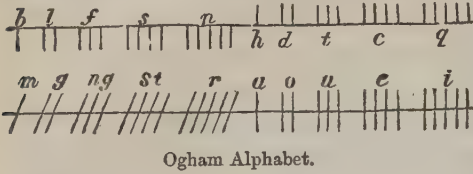 b l f s n h d t c q
m g ng st r a o u e i
Ogham Alphabet.